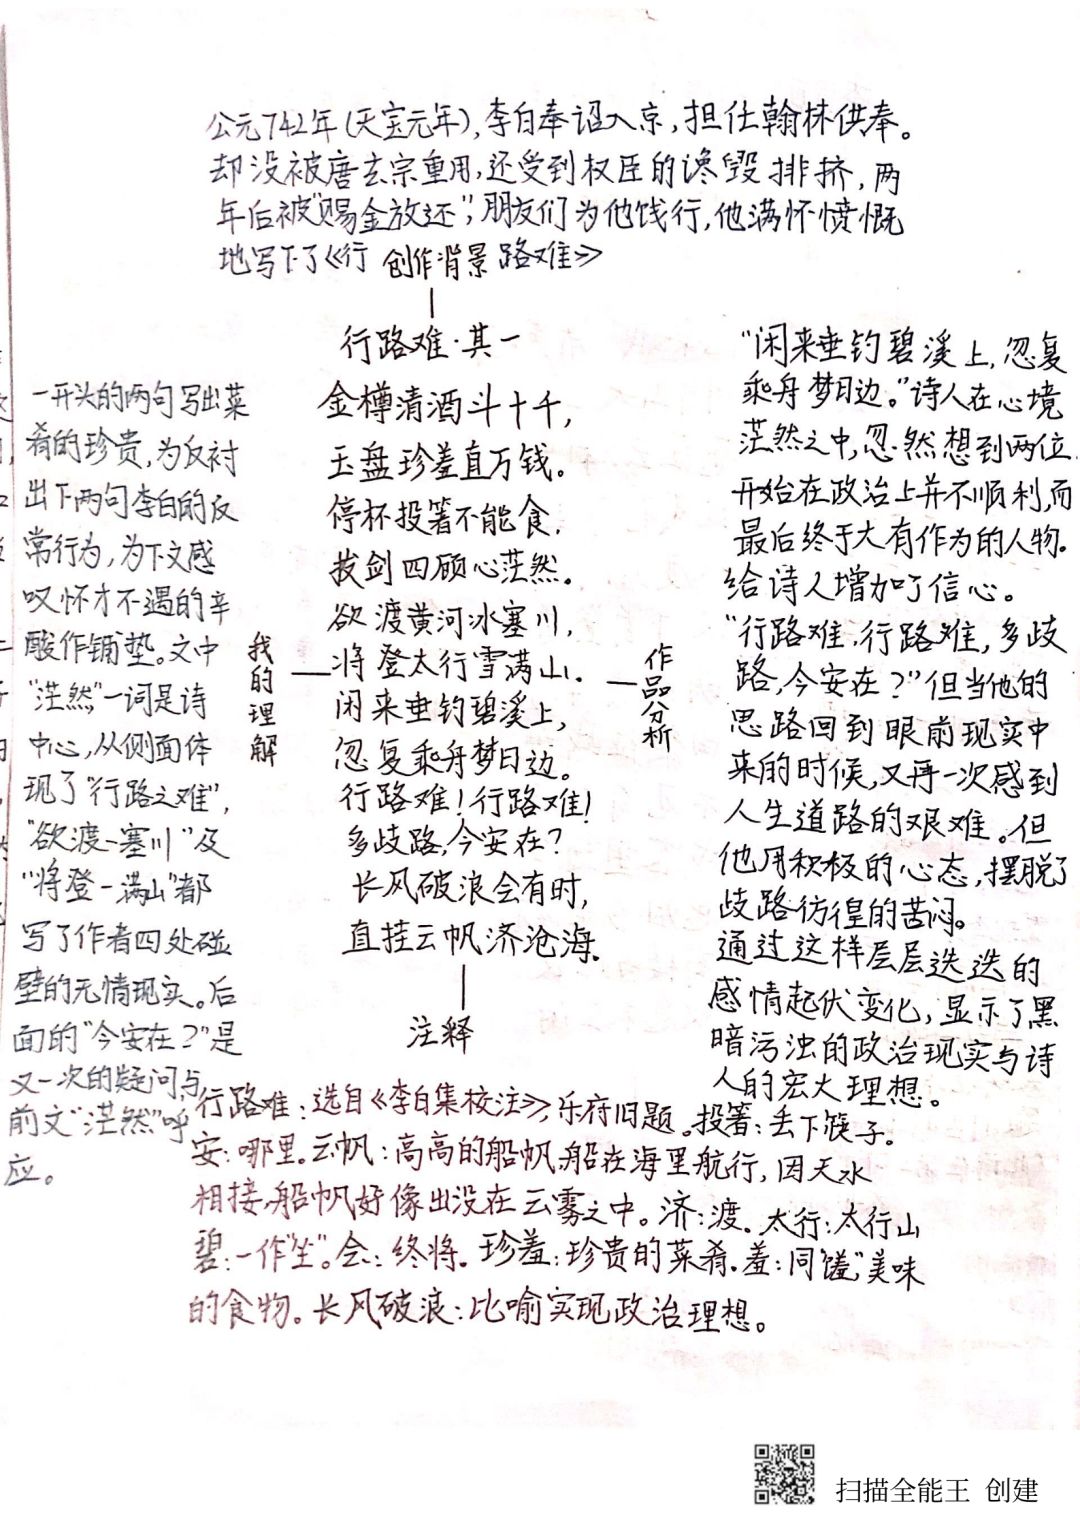 公元742年(天宝元年),李白奉诏入京,担任翰林供奉。
却没被唐玄宗重用,还受到权臣的谗毁排挤,两
年后被“赐金放还”,朋友们为他饯行,他满怀愤慨
地写下了《行 创作背景 路难》
行路难·其一
金樽清酒斗十千,
玉盘珍羞直万钱。
停杯投箸不能食,
拔剑四顾心茫然。
欲渡黄河冰塞川,
将登太行雪满山.
闲来垂钓碧溪上,
忽复乘舟梦日边。
行路难!行路难!
多歧路,今安在?
长风破浪会有时,
直挂云帆济沧海.
我的理解
一开头的两句写出菜
肴的珍贵,为反衬
出下两句李白的反
常行为,为下文感
叹怀才不遇的辛
酸作铺垫。文中
“茫然”一词是诗
中心,从侧面体
现了“行路之难”,
“欲渡-塞川”及
“将登-满山”都
写了作者四处碰
壁的无情现实。后
面的“今安在?”是
又一次的疑问,与
前文“茫然”呼
应。
作品分析
“闲来垂钓碧溪上,忽复
乘舟梦日边。”诗人在心境
茫然之中,忽然想到两位
开始在政治上并不顺利,而
最后终于大有作为的人物.
给诗人增加了信心。
“行路难,行路难,多歧
路,今安在?”但当他的
思路回到眼前现实中
来的时候,又再一次感到
人生道路的艰难。但
他用积极的心态,摆脱了
歧路彷徨的苦闷。
通过这样层层迭迭的
感情起伏变化,显示了黑
暗污浊的政治现实与诗
人的宏大理想。
注释
行路难:选自《李白集校注》,乐府旧题。投箸:丢下筷子.
安:哪里。云帆:高高的船帆,船在海里航行,因天水
相接,船帆好像出没在云雾之中。济:渡.太行:太行山
碧:一作“坐”。会:终将.珍羞:珍贵的菜肴.羞:同“馐”,美味
的食物。长风破浪:比喻实现政治理想。
扫描全能王 创建